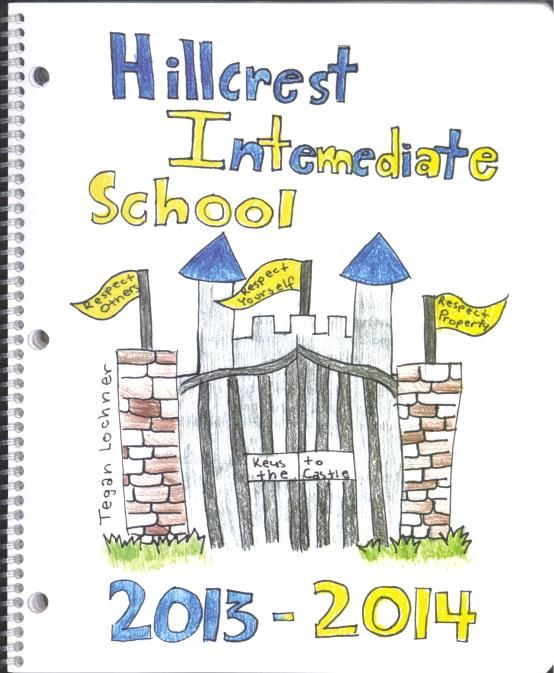 Hillcrest
Intemediate
School
Respect
Others
Respect
Yourself
Respect
Property
Tegan Lochner
Keys to
the Castle
2013-2014